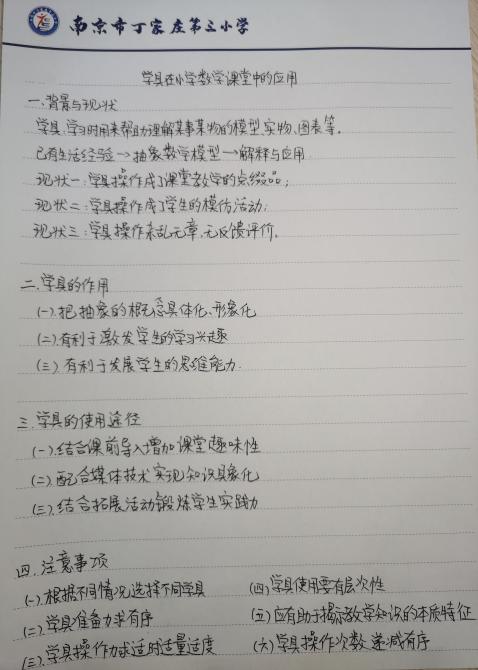 南京市丁家庄第三小学
学具在小学数学课堂中的应用
一.背景与现状
学具:学习时用来帮助理解某事某物的模型、实物、图表等。
已有生活经验→抽象数学模型→解释与应用
现状一:学具操作成了课堂教学的点缀品;
现状二:学具操作成了学生的模仿活动;
现状三:学具操作杂乱无章、无反馈评价。
二.学具的作用
(一).把抽象的概念具体化、形象化
(二).有利于激发学生的学习兴趣
(三).有利于发展学生的思维能力.
三.学具的使用途径
(一).结合课前导入增加课堂趣味性
(二).配合媒体技术实现知识具象化
(三).结合拓展活动锻炼学生实践力
四.注意事项
(一).根据不同情况选择不同学具
(二).学具准备力求有序
(三).学具操作力求适时适量适度
(四).学具使用要有层次性
(五).应有助于揭示数学知识的本质特征
(六).学具操作次数递减有序